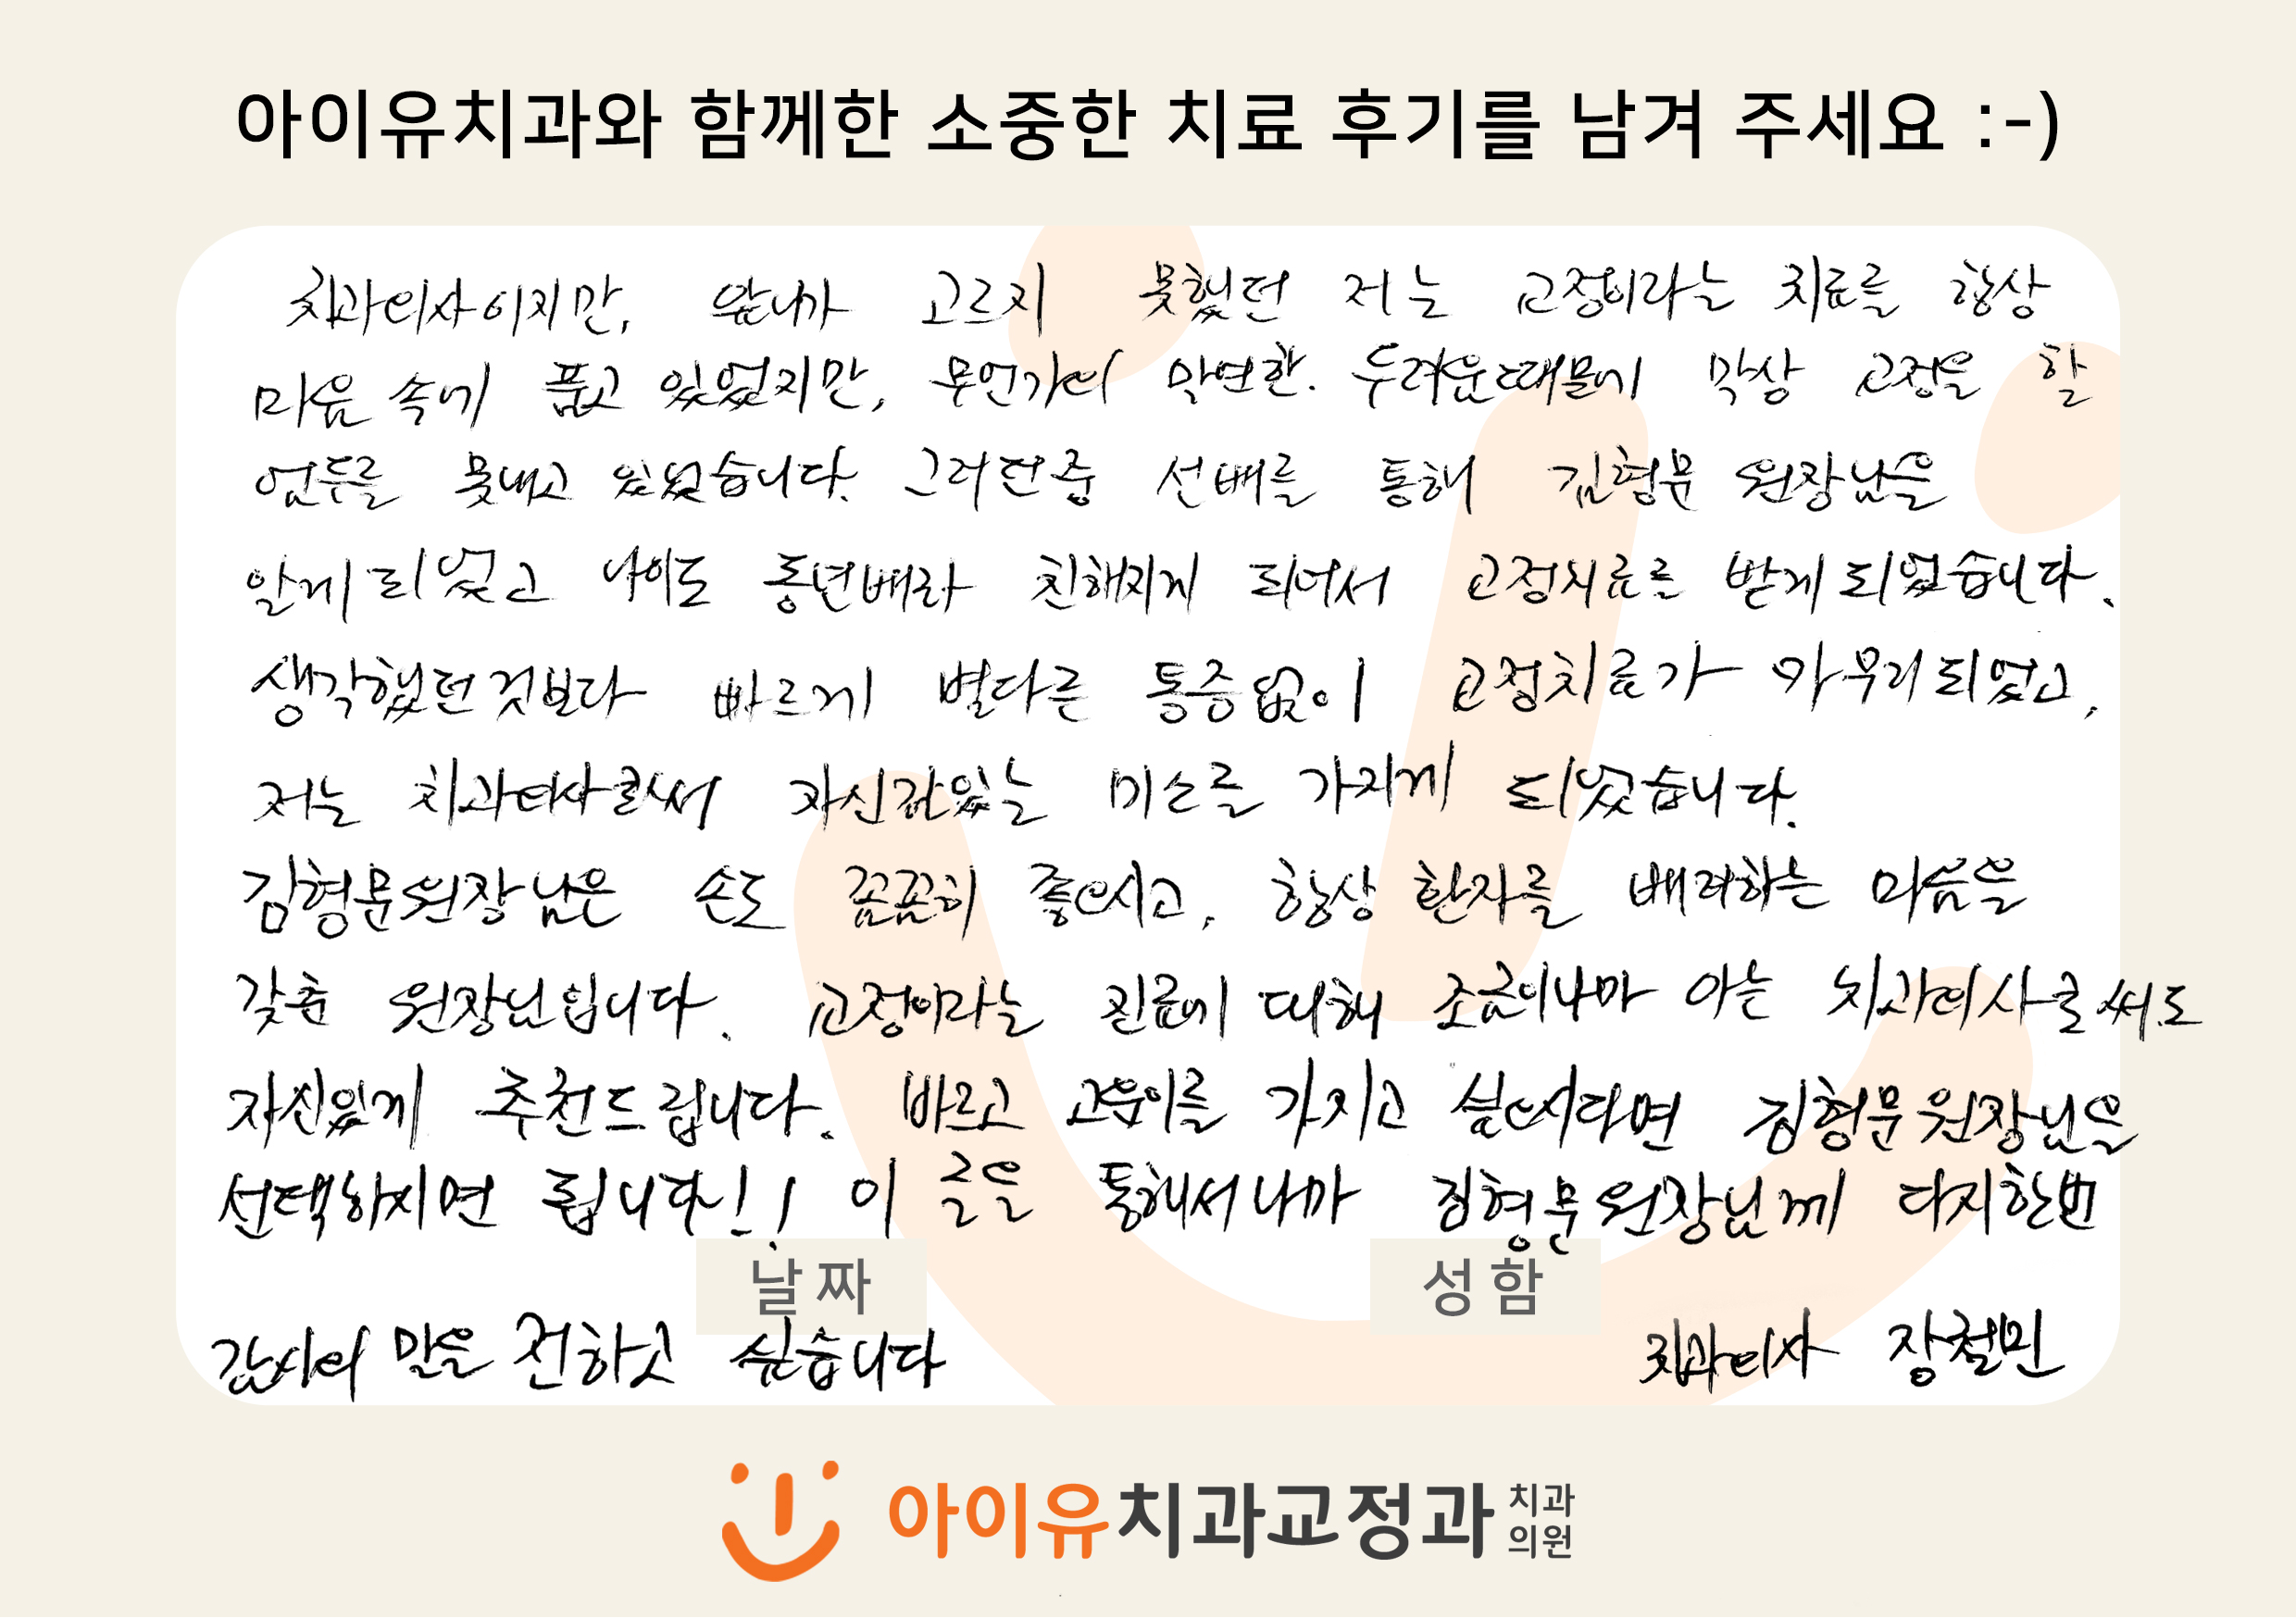 아이유치과와 함께한 소중한 치료 후기를 남겨 주세요 :-)
치과의사이지만, 앞니가 고르지 못했던 저는 교정이라는 치료를 항상
마음 속에 품고 있었지만, 무언가의 막연한 두려운때문에 막상 교정을 할
엄두를 못내고 있었습니다. 그러던중 선배를 통해 김형문 원장님을
알게 되었고 나이도 동년배라 친해지게 되어서 교정치료를 받게 되었습니다.
생각했던것보다 빠르게 별다른 통증없이 교정치료가 마무리 되었고,
저는 치과의사로써 자신감있는 미소를 가지게 되었습니다.
김형문원장님은 손도 꼼꼼히 좋으시고, 항상 환자를 배려하는 마음을
갖춘 원장님입니다. 교정이라는 진료에 대해 조금이나마 아는 치과의사로써도
자신있게 추천드립니다. 바르고 고운이를 가지고 싶으시다면 김형문원장님을
선택하시면 됩니다!! 이 글을 통해서나마 김형문원장님께 다시한번
날짜 성함
감사의 말을 전하고 싶습니다 치과의사 장철민
아이유치과교정과 치과
의원